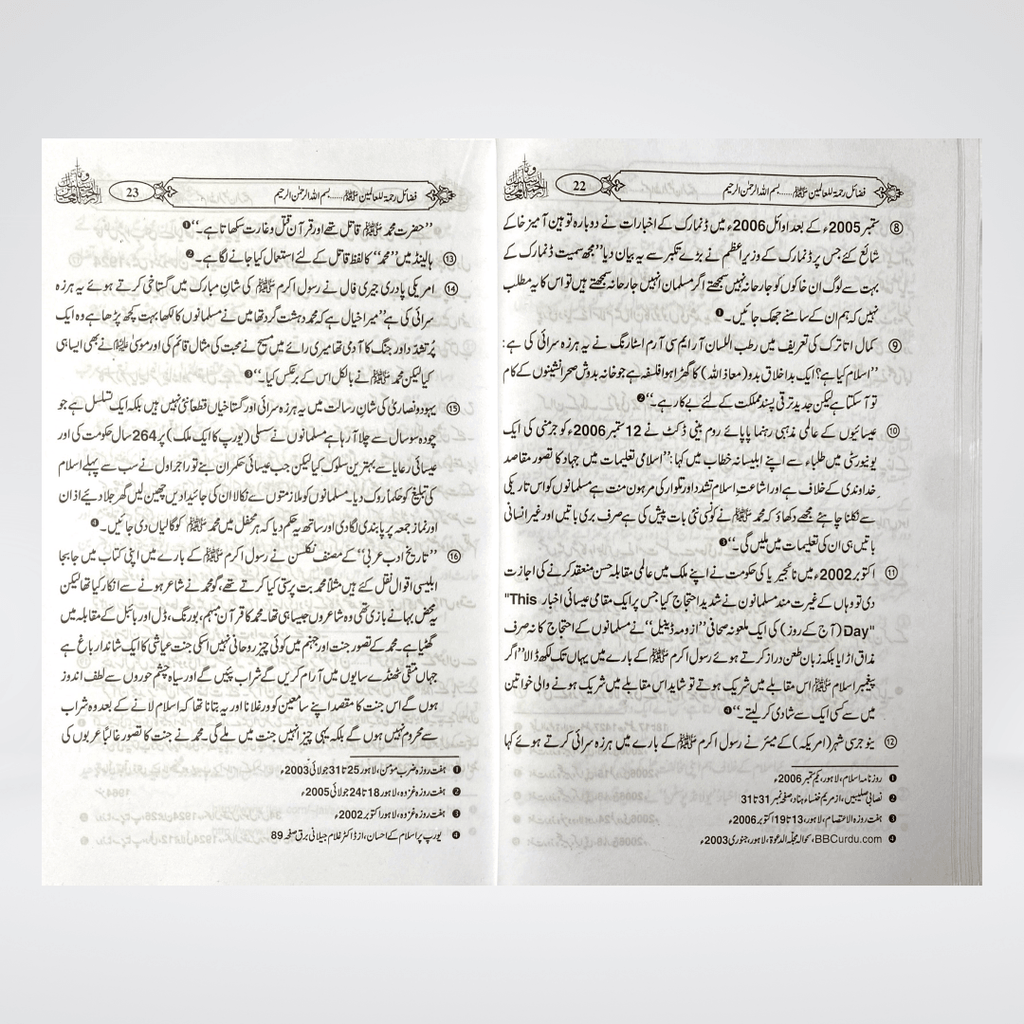 22
فضائل رحمۃ للعالمین ﷺ ...... بسم اللہ الرحمٰن الرحیم
⑧ ستمبر 2005ء کے بعد اوائل 2006ء میں ڈنمارک کے اخبارات نے دوبارہ توہین آمیز خاکے
شائع کئے جس پر ڈنمارک کے وزیر اعظم نے بڑے تکبر سے یہ بیان دیا ’’مجھ سمیت ڈنمارک کے
بہت سے لوگ ان خاکوں کو جارحانہ نہیں سمجھتے اگر مسلمان انہیں جارحانہ سمجھتے ہیں تو اس کا یہ مطلب
نہیں کہ ہم ان کے سامنے جھک جائیں۔❶
⑨ کمال اتاترک کی تعریف میں رطب اللسان آر ایم سی آرم اسٹارنگ نے یہ ہرزہ سرائی کی ہے:
’’اسلام کیا ہے؟ ایک بد اخلاق بدو (معاذ اللہ) کا گھڑا ہوا فلسفہ ہے جو خانہ بدوش صحرا نشینوں کے کام
تو آسکتا ہے لیکن جدید ترقی پسند مملکت کے لئے بے کار ہے۔‘‘❷
⑩ عیسائیوں کے عالمی مذہبی رہنما پاپائے روم بینی ڈکٹ نے 12 ستمبر 2006ء کو جرمنی کی ایک
یونیورسٹی میں طلباء سے اپنے ابلیسانہ خطاب میں کہا: ’’اسلامی تعلیمات میں جہاد کا تصور مقاصد
خداوندی کے خلاف ہے اور اشاعت اسلام تشدد اور تلوار کی مرہون منت ہے مسلمانوں کو اس تاریکی
سے نکلنا چاہئے مجھے دکھاؤ کہ محمد ﷺ نے کونسی نئی بات پیش کی ہے صرف بری باتیں اور غیر انسانی
باتیں ہی ان کی تعلیمات میں ملیں گی۔‘‘❸
⑪ اکتوبر 2002ء میں نائجیریا کی حکومت نے اپنے ملک میں عالمی مقابلہ حسن منعقد کرنے کی اجازت
دی تو وہاں کے غیرت مند مسلمانوں نے شدید احتجاج کیا جس پر ایک مقامی عیسائی اخبار "This
Day" (آج کے روز) کی ایک ملعونہ صحافی ’’ازومہ ڈینیل‘‘ نے مسلمانوں کے احتجاج کا نہ صرف
مذاق اڑایا بلکہ زبان طعن دراز کرتے ہوئے رسول اکرم ﷺ کے بارے میں یہاں تک لکھ ڈالا ’’اگر
پیغمبر اسلام ﷺ اس مقابلے میں شریک ہوتے تو شاید اس مقابلے میں شریک ہونے والی خواتین
میں سے کسی ایک سے شادی کر لیتے۔‘‘❹
⑫ نیو جرسی شہر (امریکہ) کے میئر نے رسول اکرم ﷺ کے بارے میں ہرزہ سرائی کرتے ہوئے کہا
❶ روزنامہ اسلام، لاہور، یکم ستمبر 2006ء
❷ نصابی صلیبیں، از مریم خنساء بناد، صفحہ نمبر 31 تا 31
❸ ہفت روزہ الاعتصام، لاہور، 13 تا 19 اکتوبر 2006ء
❹ BBCurdu.com، بحوالہ مجلہ الدعوۃ، لاہور، جنوری 2003ء
23
فضائل رحمۃ للعالمین ﷺ ...... بسم اللہ الرحمٰن الرحیم
’’حضرت محمد ﷺ قاتل تھے اور قرآن قتل و غارت سکھاتا ہے۔‘‘❶
⑬ ہالینڈ میں ’’محمد‘‘ کا لفظ قاتل کے لئے استعمال کیا جانے لگا ہے۔❷
⑭ امریکی پادری جیری فال نے رسول اکرم ﷺ کی شان مبارک میں گستاخی کرتے ہوئے یہ ہرزہ
سرائی کی ہے ’’میرا خیال ہے کہ محمد دہشت گرد تھا میں نے مسلمانوں کا لکھا بہت کچھ پڑھا ہے وہ ایک
پُر تشدد اور جنگ کا آدمی تھا میری رائے میں مسیح نے محبت کی مثال قائم کی اور موسیٰ علیہ السلام نے بھی ایسا ہی
کیا لیکن محمد ﷺ نے بالکل اس کے برعکس کیا۔‘‘❸
⑮ یہود و نصاریٰ کی شانِ رسالت میں یہ ہرزہ سرائی اور گستاخیاں قطعاً نئی نہیں ہیں بلکہ ایک تسلسل ہے جو
چودہ سو سال سے چلا آ رہا ہے مسلمانوں نے سسلی (یورپ کا ایک ملک) پر 264 سال حکومت کی اور
عیسائی رعایا سے بہترین سلوک کیا لیکن جب عیسائی حکمران بنے تو راجر اول نے سب سے پہلے اسلام
کی تبلیغ کو حکماً روک دیا۔ مسلمانوں کو ملازمتوں سے نکالا ان کی جائیدادیں چھین لیں گھر جلا دیئے اذان
اور نماز جمعہ پر پابندی لگا دی اور ساتھ یہ حکم دیا کہ ہر محفل میں محمد ﷺ کو گالیاں دی جائیں۔❹
⑯ ’’تاریخ ادب عربی‘‘ کے مصنف نکلسن نے رسول اکرم ﷺ کے بارے میں اپنی کتاب میں جا بجا
ابلیسی اقوال نقل کئے ہیں مثلاً محمد بت پرستی کیا کرتے تھے، گو محمد نے شاعر ہونے سے انکار کیا تھا لیکن
یہ محض بہانے بازی تھی وہ شاعروں جیسا ہی تھا، محمد کا قرآن مبہم، بورنگ، ڈل اور بائبل کے مقابلہ میں
گھٹیا ہے۔ محمد کے تصور جنت اور جہنم میں کوئی چیز روحانی نہیں اسکی جنت عیاشی کا ایک شاندار باغ ہے
جہاں متقی ٹھنڈے سایوں میں آرام کریں گے شراب پیئیں گے اور سیاہ چشم حوروں سے لطف اندوز
ہوں گے اس جنت کا مقصد اپنے سامعین کو ورغلانا اور یہ بتانا تھا کہ اسلام لانے کے بعد وہ شراب
سے محروم نہیں ہوں گے بلکہ یہی چیز انہیں جنت میں ملے گی۔ محمد نے جنت کا تصور غالباً عربوں کی
❶ ہفت روزہ ضرب مومن، لاہور، 25 تا 31 جولائی 2003ء
❷ ہفت روزہ غزوہ، لاہور 18 تا 24 جولائی 2005ء
❸ ہفت روزہ غزوہ، لاہور اکتوبر 2002ء
❹ یورپ پر اسلام کے احسان، از ڈاکٹر غلام جیلانی برق صفحہ 89